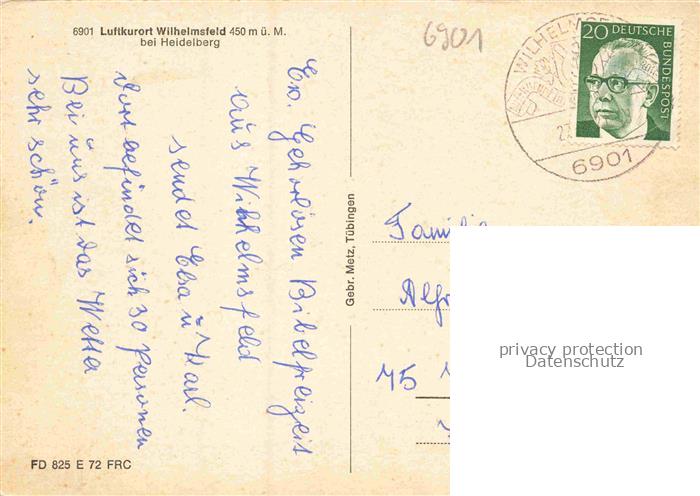 6901 Luftkurort Wilhelmsfeld 450 m ü. M.
bei Heidelberg
Ev. Gehörlosen Bibelfreizeit
aus Wilhelmsfeld
sendet Elsa u Karl.
dort befindet sich 30 Personen
Bei uns ist das Wetter
sehr schön.
FD 825 E 72 FRC
Gebr. Metz, Tübingen
6901
WILHELMSFE
6901
20 DEUTSCHE BUNDESPOST
Familie
Alfr
75
privacy protection
Datenschutz